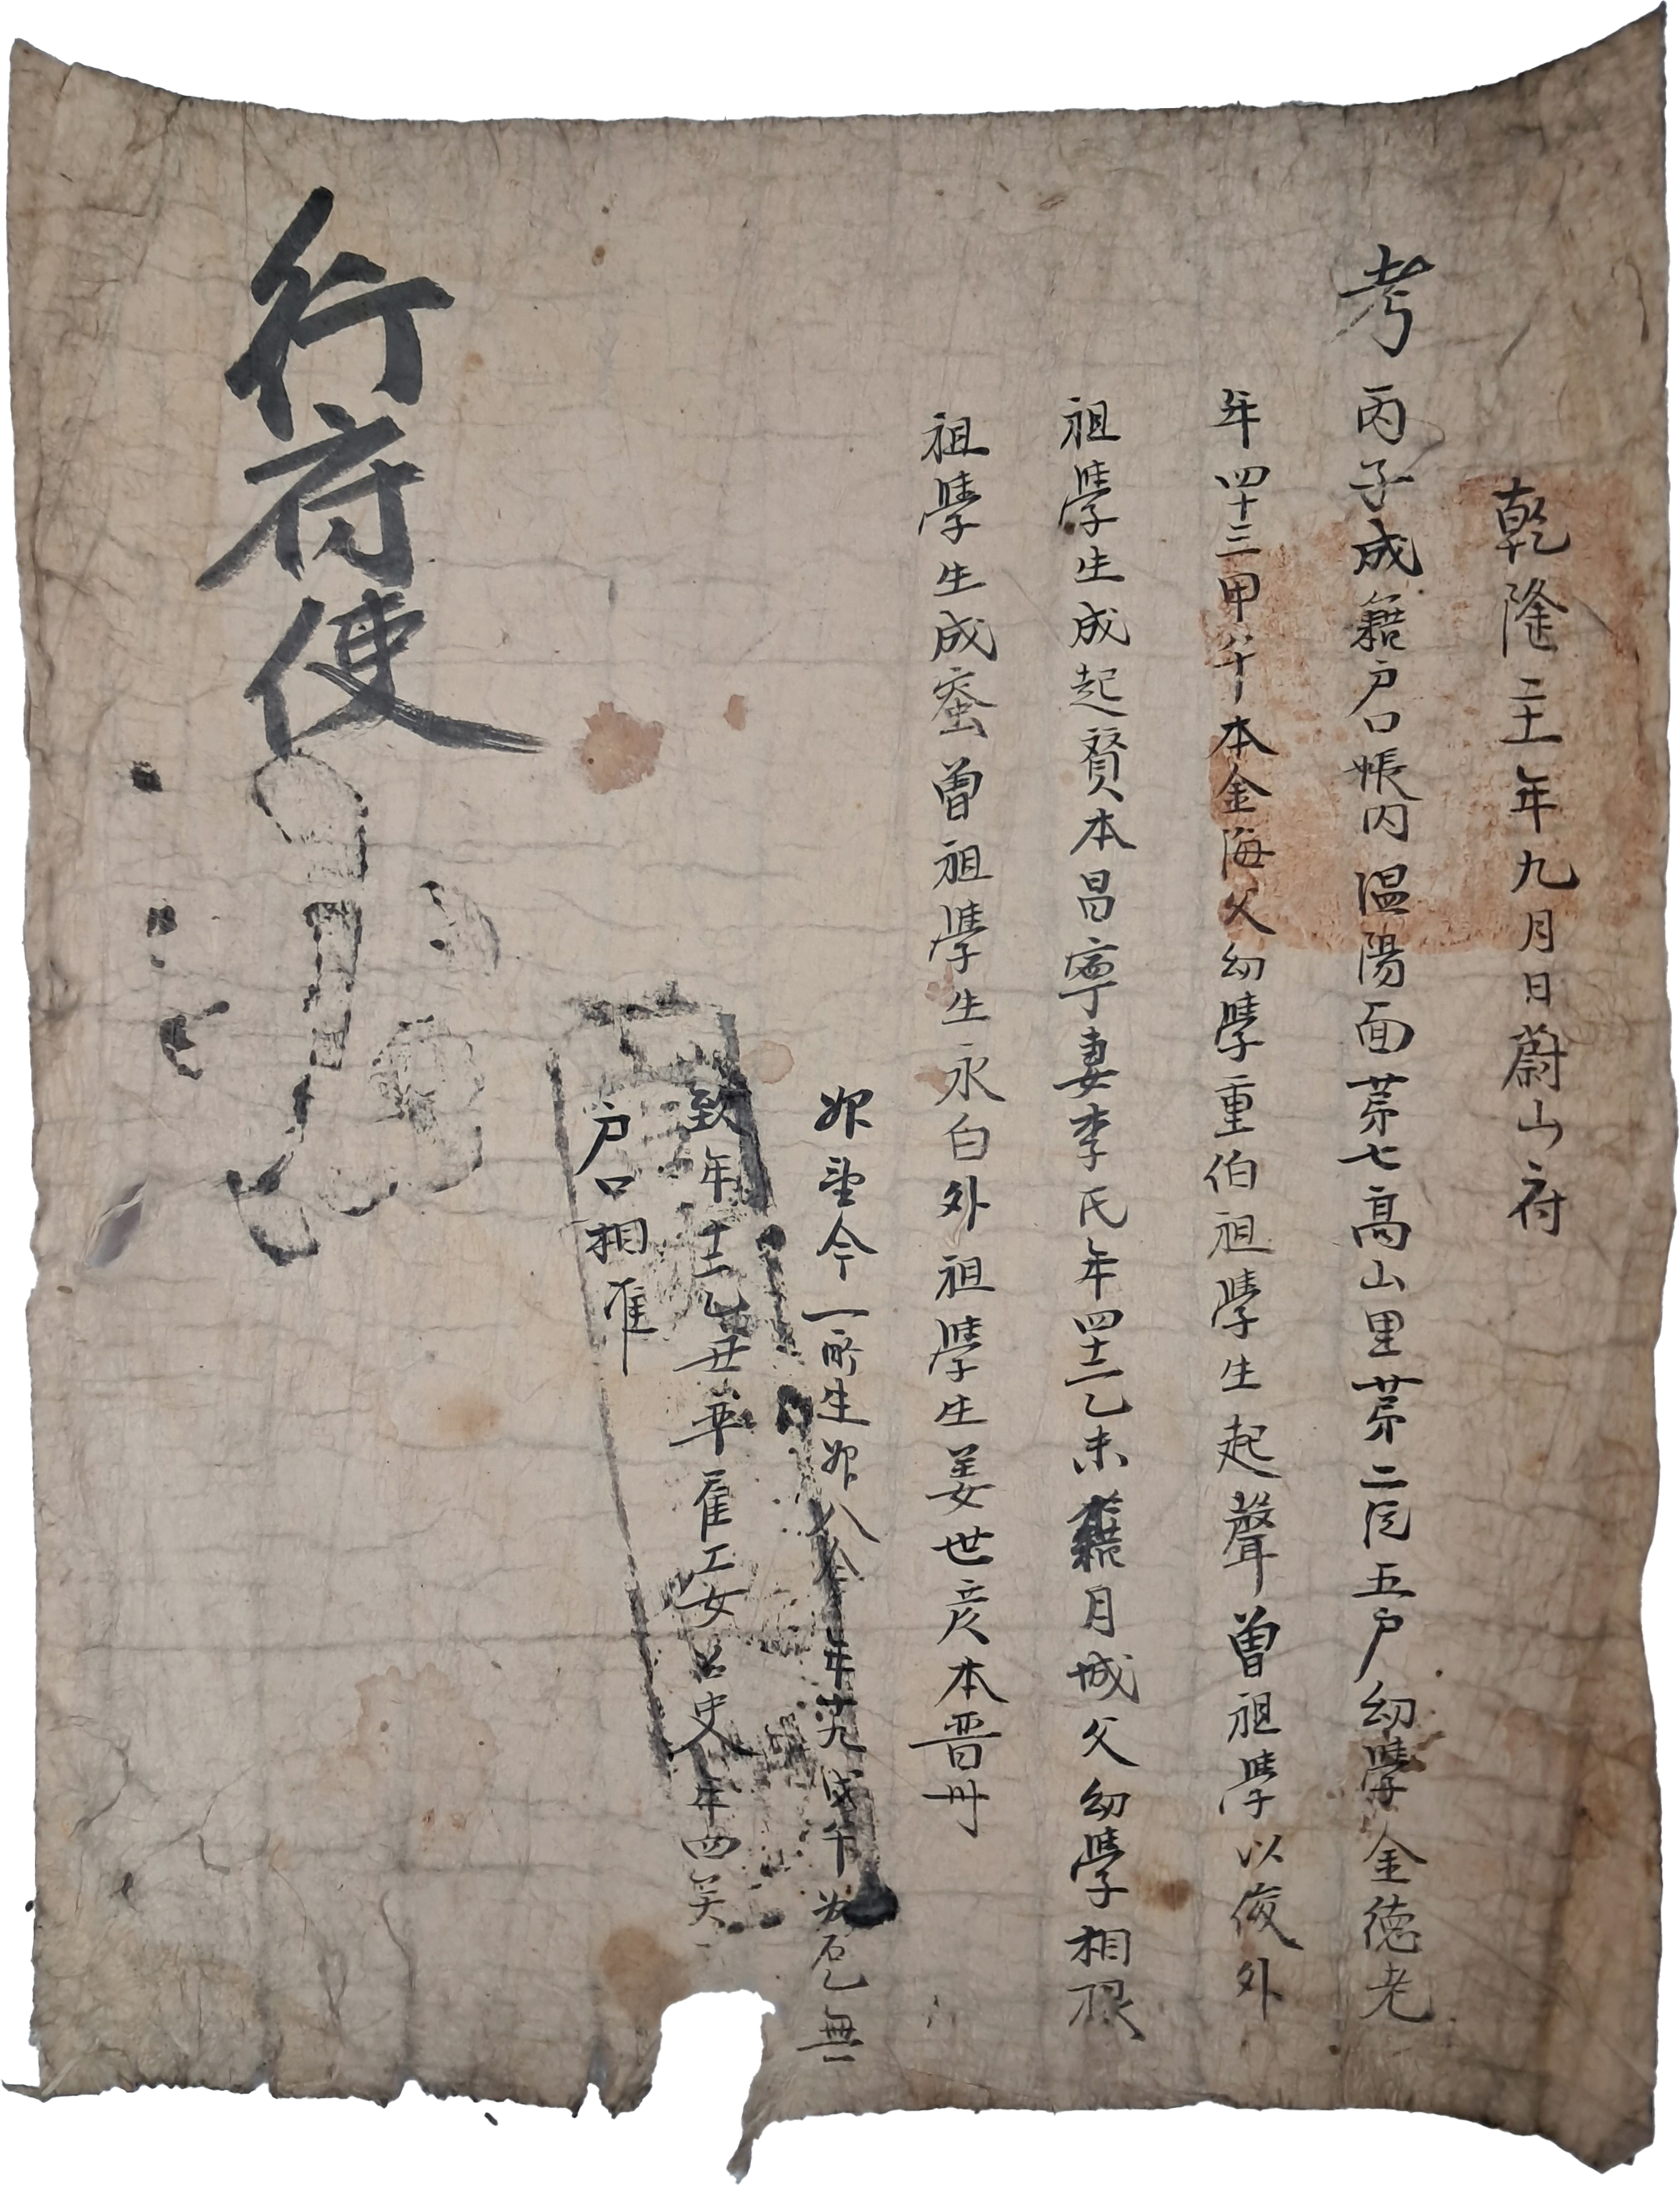 乾隆二十一年九月日蔚山府
考丙子成籍户口帳內溫陽面苐七高山里苐二统五户幼學金德老
年四十三甲午本金海父幼學重伯祖學生起聲曾祖學以俊外
祖學生成起賢本昌寧妻李氏年四十二乙未籍月城父幼學相琅
祖學生成蚕曾祖學生永白外祖學生姜世彦本晋州
婢望今一所生婢八今年十九戊午故己無
致年十二乙丑等雇工女召史年四矣
户口相准
行府使